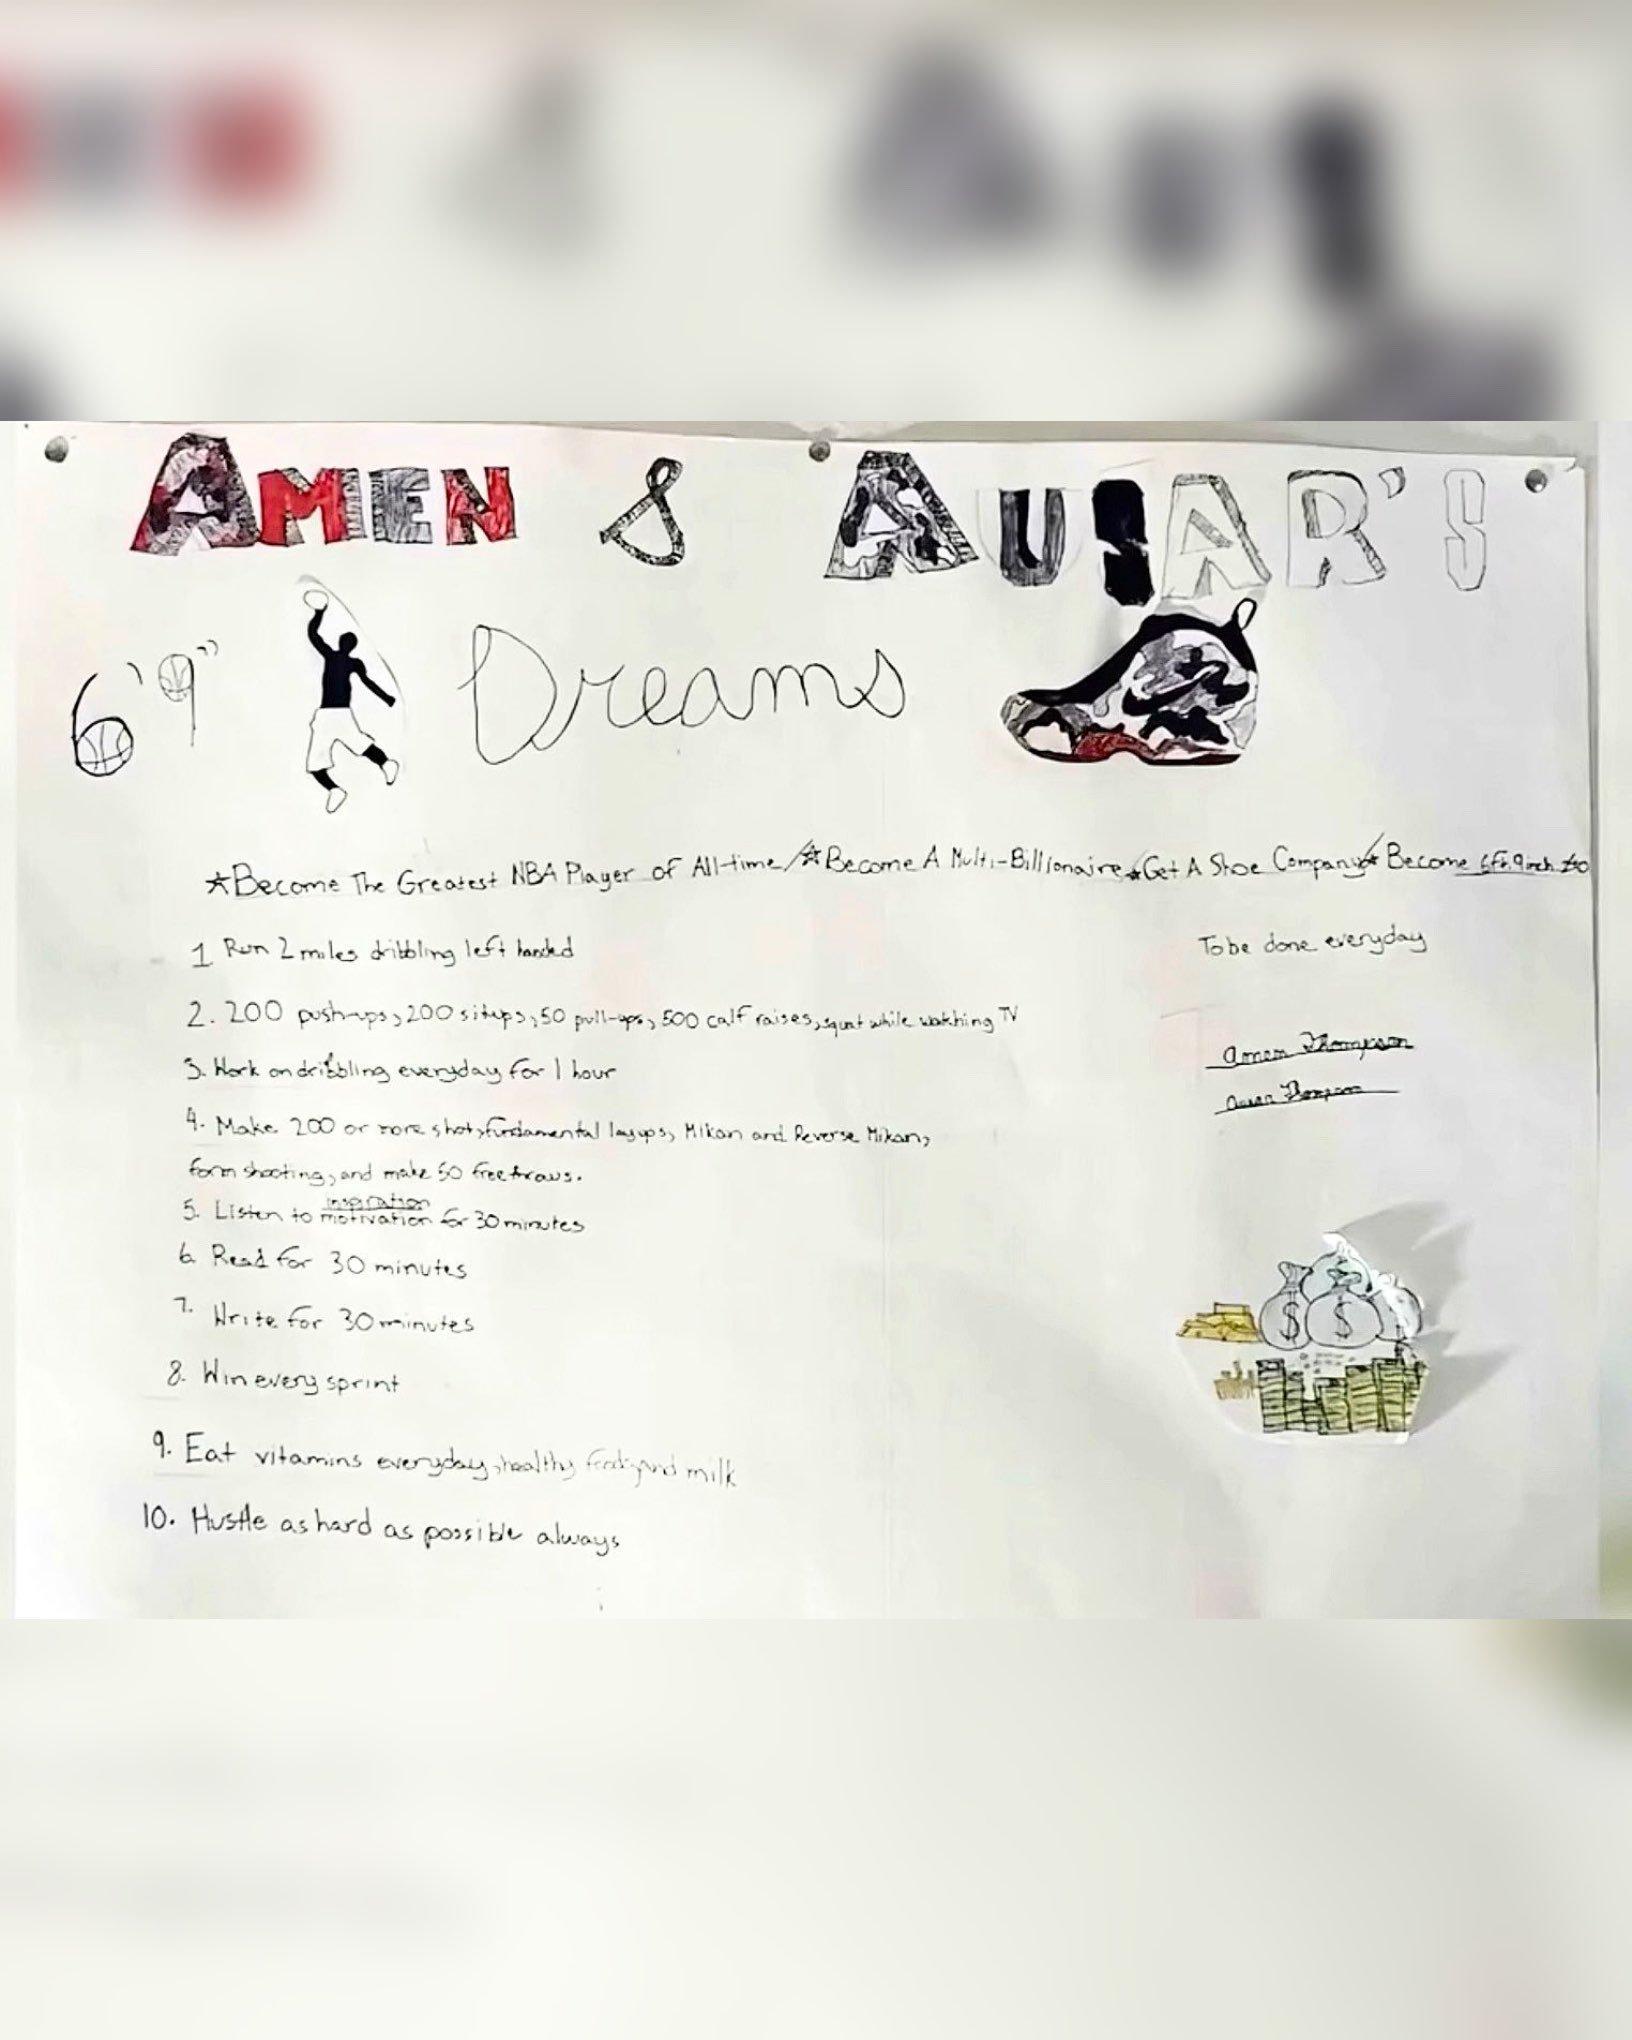 AMEN & AUSAR'S
6'9" Dreams
☆Become The Greatest NBA Player of All-time/☆Become A Multi-Billionaire☆Get A Shoe Company☆Become 6ft. 9inch
1 Run 2 miles dribbling left handed
To be done everyday
2. 200 push-ups, 200 situps, 50 pull-ups, 500 calf raises, squat while watching TV
Amen Thompson
3. Work on dribbling everyday for 1 hour
Ausar Thompson
4. Make 200 or more shots, fundamental layups, Mikan and Reverse Mikan,
form shooting, and make 50 freethrows.
inspiration
5. Listen to motivation for 30 minutes
6. Read for 30 minutes
7. Write for 30 minutes
$ $
8. Win every sprint
9. Eat vitamins everyday, healthy foods, and milk
10. Hustle as hard as possible always